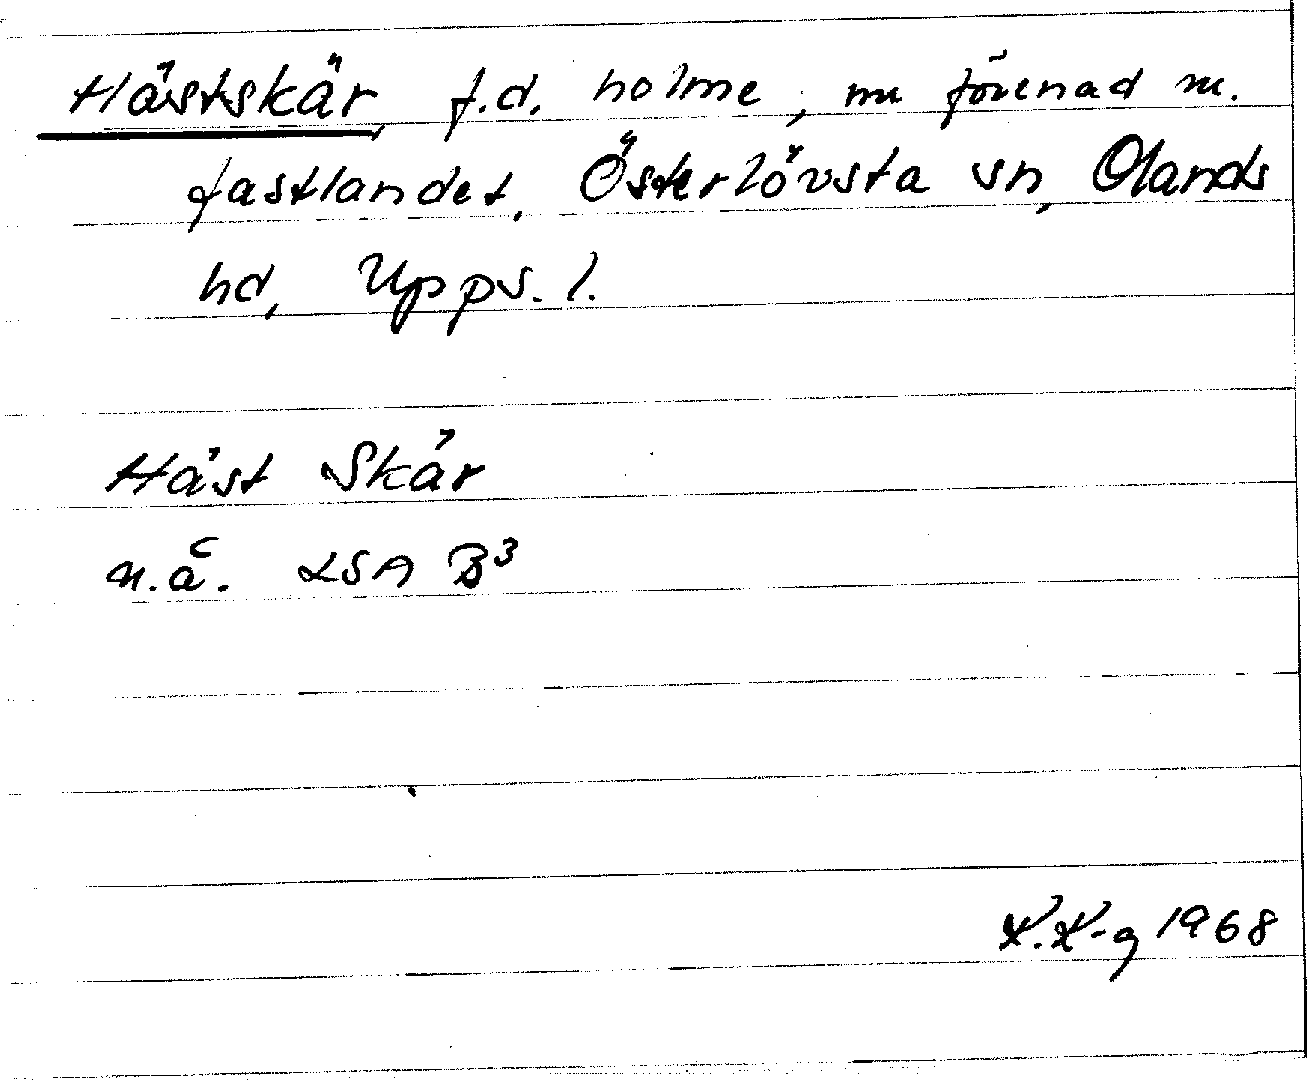 Hästskär, f.d. holme, nu förenad m.
fastlandet, Österlövsta sn, Olands
hd, Upps. l.
Häst Skär
n.å. LSA B3
K.K-g 1968